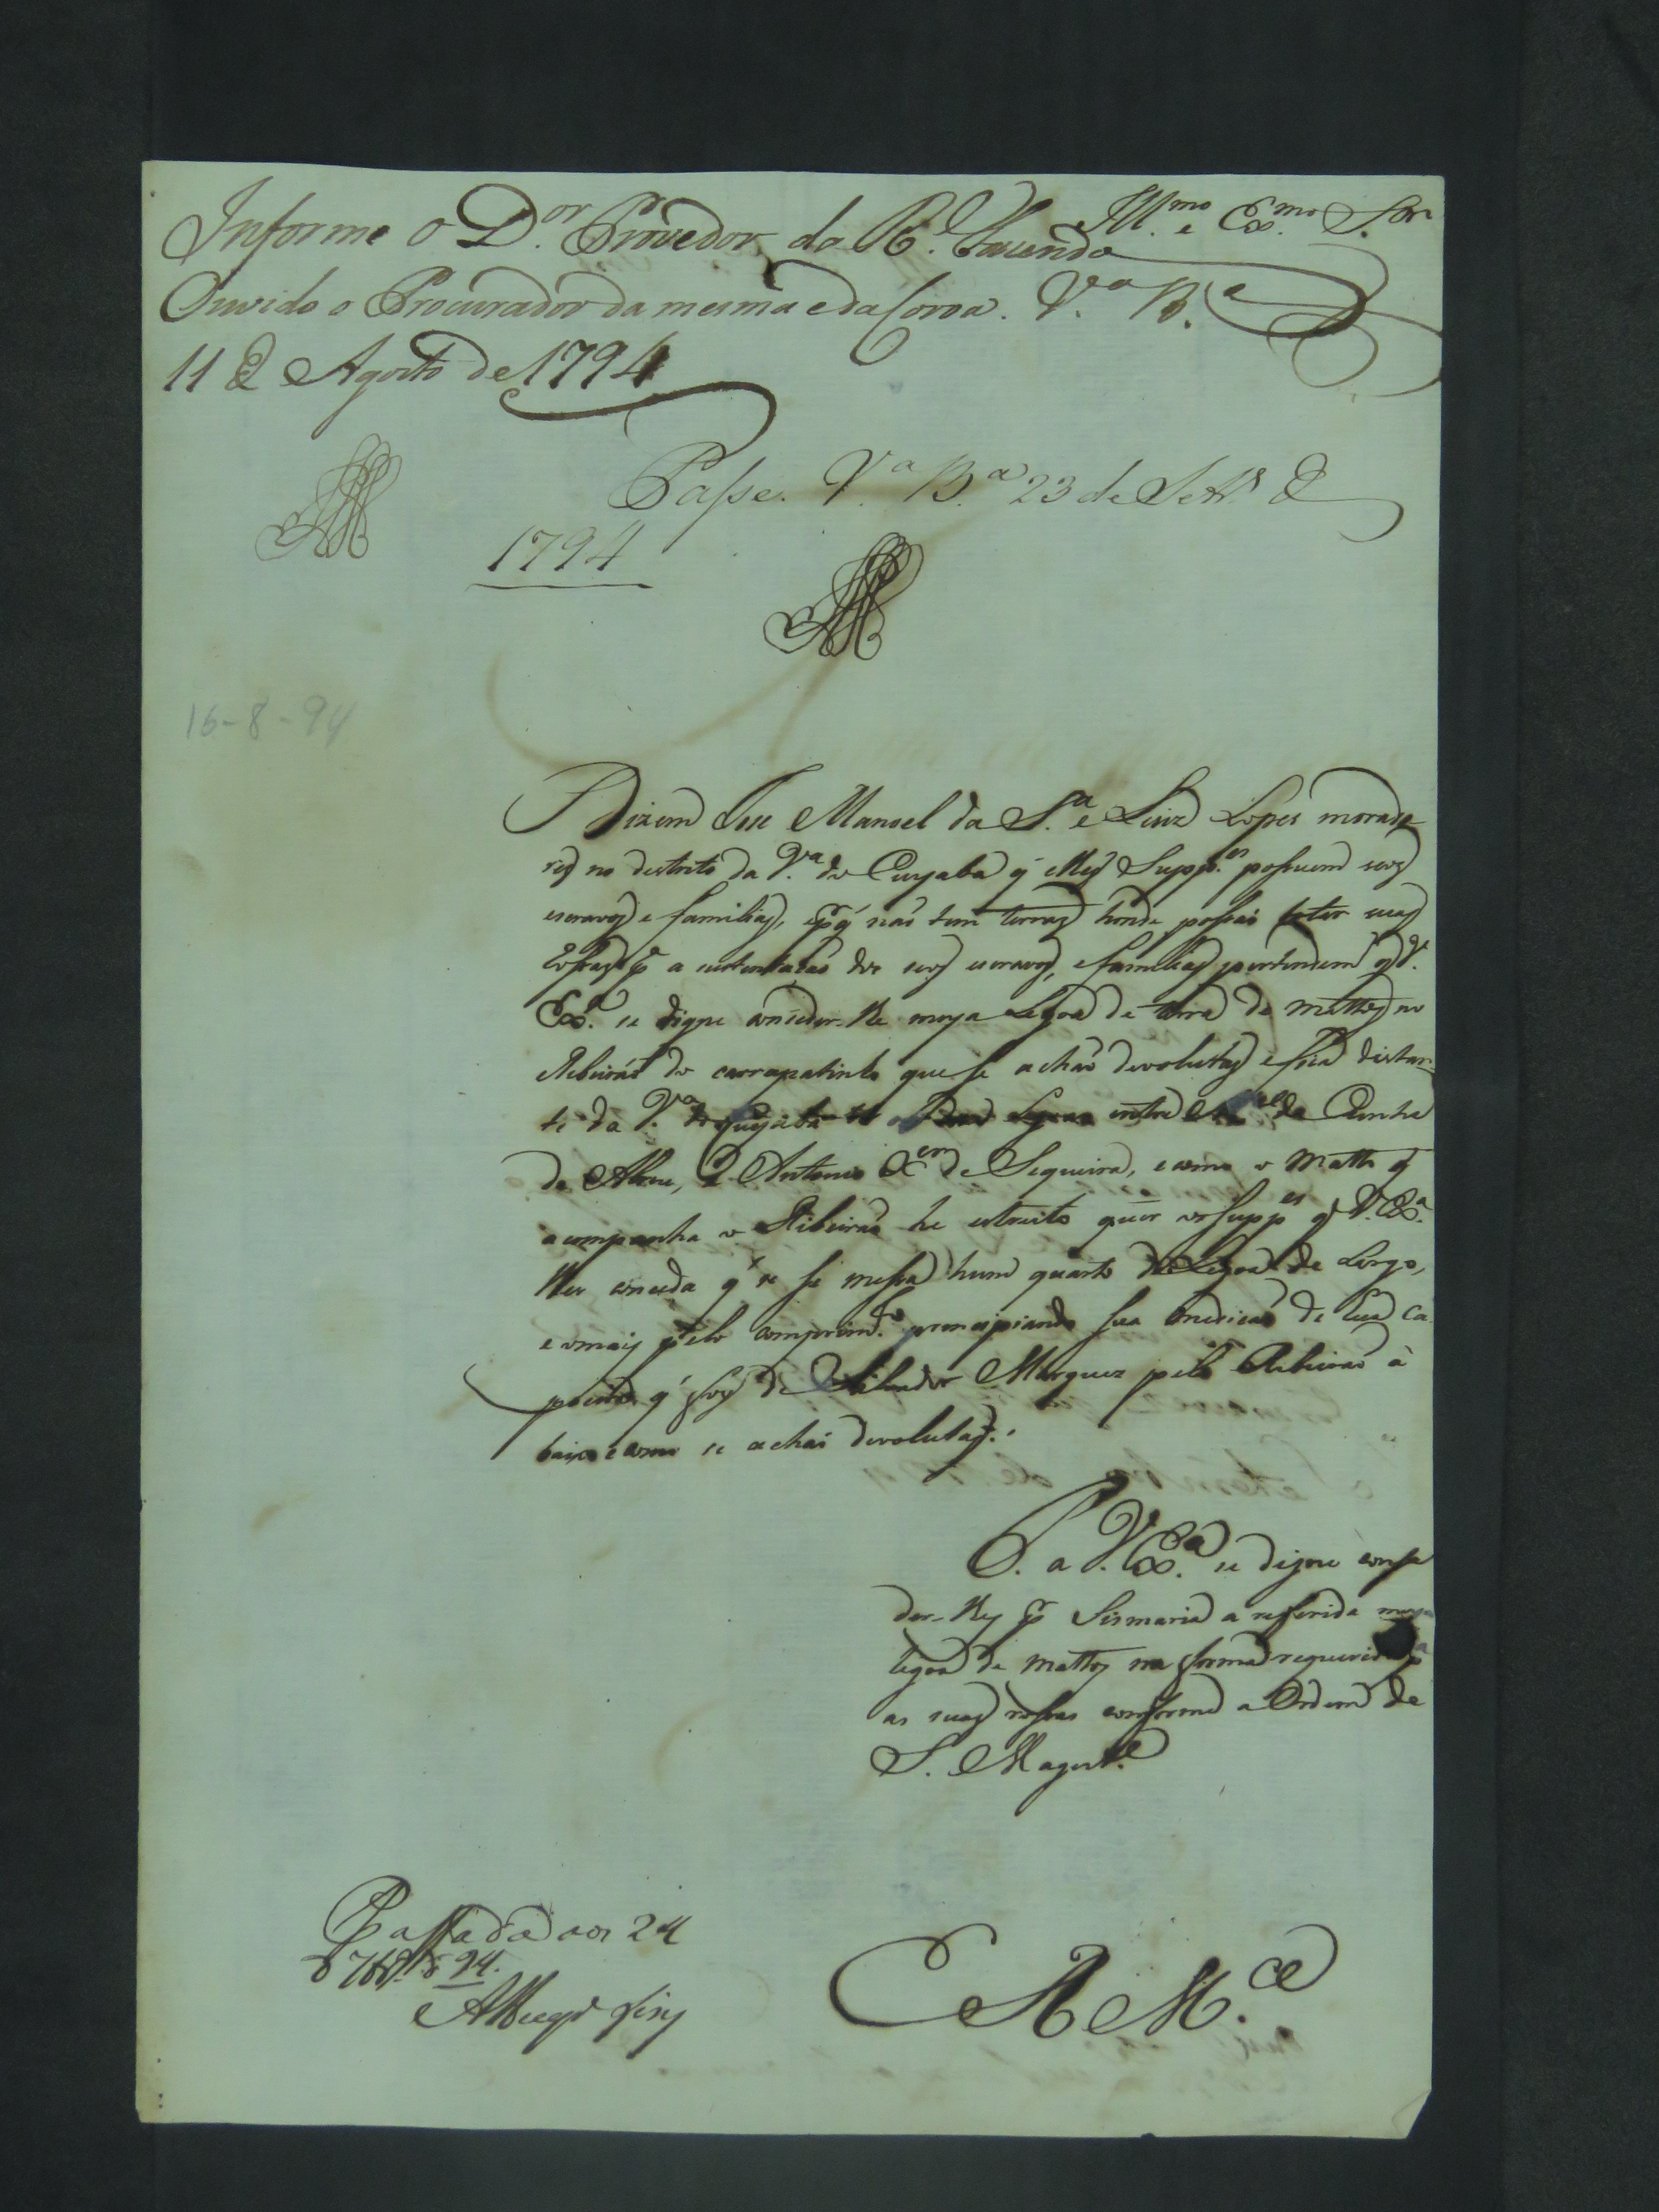 Ill.mo e Ex.mo S.or
Informe o D.or Provedor da R.l Fazenda
Ouvido o Procurador da mesma e da Coroa. V.a B.a
11 de Agosto de 1794
Passe. V.a B.a 23 de Setbr.o de
1794
16-8-94
Dizem Jose Manoel da S.a e Luiz Lopes morado
res no destrito da V.a do Cuyaba q' elles Supp.es possuem seos
escravos e familias, e p.r q' não tem terras honde possão fazer suas
rossas p.a a sustentação dos seos escravos, e familias pertendem q' V.
Ex.a se digne conceder-lhe meya Legoa de terra de mattos no
Ribeirão do carrapatinho que se achão devolutas e fica distan-
te da V.a do Cuyabá entre M.el da Cunha
de Abreu, e Antonio X.er de Sequeira, e como o Matto q'
acompanha o Ribeirão he estreito querem os Supp.es q' V. Ex.a
lhes conceda q' se messa hum quarto de Legoa de Largo,
e o mais pelo comprim.to principiando sua medicão de hua ca
poeira q' foy de Salvador Marques pelo Ribeirão à
baixo e como se achão devolutas.
P. a V. Ex.a se digne conse
der-lhes p.r Sismaria a referida meya
legoa de mattos na forma requerida p.a
as suas rossas conforme a Ordem de
S. Magest.e
Passada aos 24
de 7br.o de 94.
E R M.ce